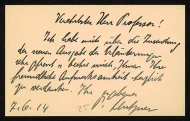 Verehrter Herr Professor!
Ich habe mich über die Zusendung
der neuen Ausgabe der
sehr gefreut u. beehre mich, Ihnen für
freundliche Aufmerksamkeit herzlich
zu danken. Ihr ergebener
7.6.14